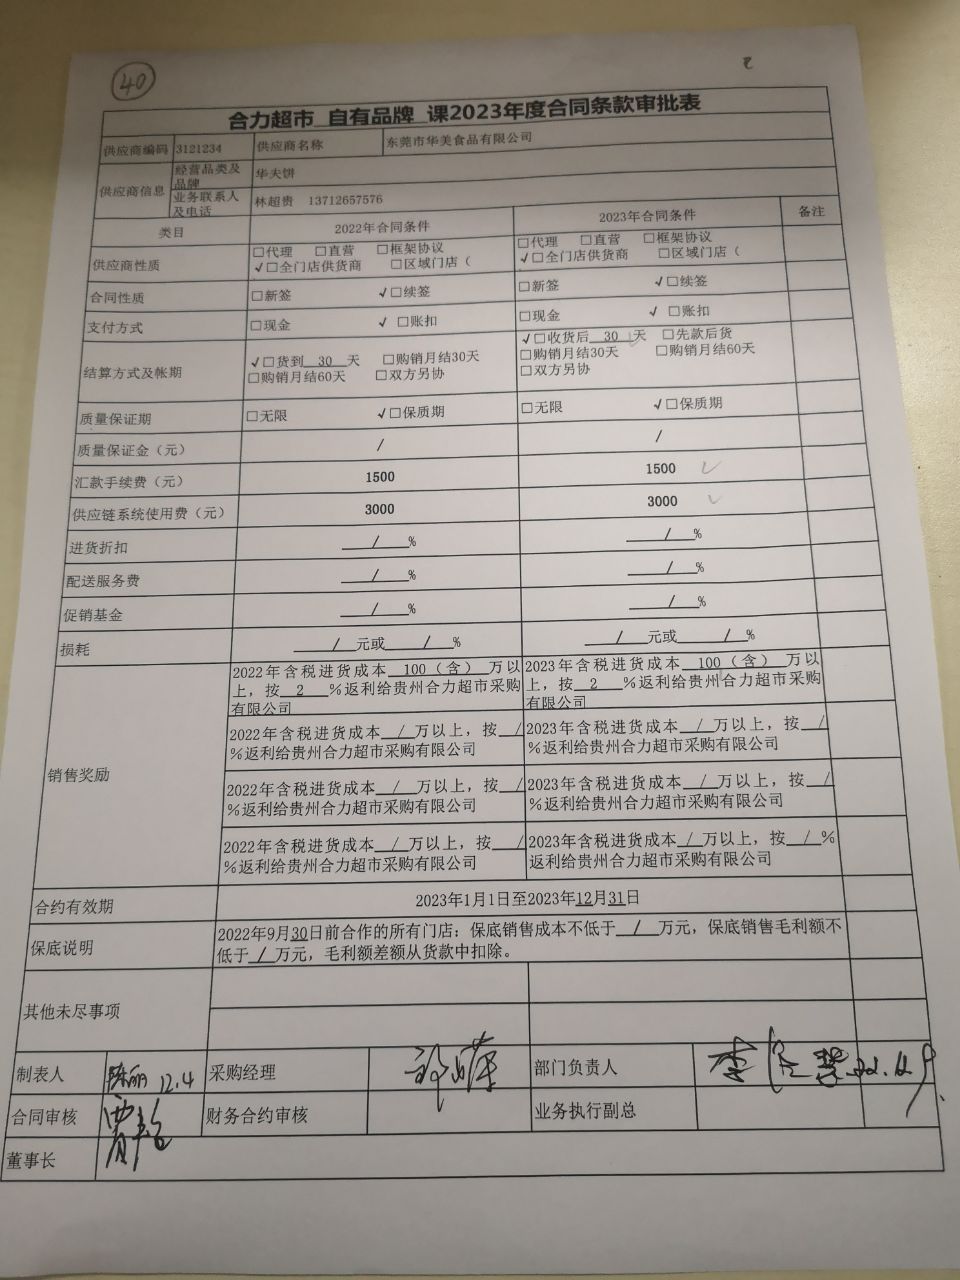 40
合力超市 自有品牌 课2023年度合同条款审批表
供应商编码 3121234 供应商名称 东莞市华美食品有限公司
供应商信息 经营品类及品牌 华夫饼
业务联系人及电话 林超贵 13712657576
类目 2022年合同条件 2023年合同条件 备注
供应商性质 □代理 □直营 □框架协议 □代理 □直营 □框架协议
✓□全门店供货商 □区域门店（ ✓□全门店供货商 □区域门店（
合同性质 □新签 ✓□续签 □新签 ✓□续签
支付方式 □现金 ✓□账扣 □现金 ✓□账扣
结算方式及帐期 ✓□货到 30 天 □购销月结30天 ✓□收货后 30 天 □先款后货
□购销月结60天 □双方另协 □购销月结30天 □购销月结60天
□双方另协
质量保证期 □无限 ✓□保质期 □无限 ✓□保质期
质量保证金（元） / /
汇款手续费（元） 1500 1500 ✓
供应链系统使用费（元） 3000 3000 ✓
进货折扣 / % / %
配送服务费 / % / %
促销基金 / % / %
损耗 / 元或 / % / 元或 / %
销售奖励
2022年含税进货成本 100（含） 万以上，按 2 %返利给贵州合力超市采购有限公司 2023年含税进货成本 100（含） 万以上，按 2 %返利给贵州合力超市采购有限公司
2022年含税进货成本 / 万以上，按 / %返利给贵州合力超市采购有限公司 2023年含税进货成本 / 万以上，按 / %返利给贵州合力超市采购有限公司
2022年含税进货成本 / 万以上，按 / %返利给贵州合力超市采购有限公司 2023年含税进货成本 / 万以上，按 / %返利给贵州合力超市采购有限公司
2022年含税进货成本 / 万以上，按 / %返利给贵州合力超市采购有限公司 2023年含税进货成本 / 万以上，按 / %返利给贵州合力超市采购有限公司
合约有效期 2023年1月1日至2023年12月31日
保底说明 2022年9月30日前合作的所有门店：保底销售成本不低于 / 万元，保底销售毛利额不
低于 / 万元，毛利额差额从货款中扣除。
其他未尽事项
制表人 陈丽 12.4 采购经理 部门负责人
合同审核 财务合约审核 业务执行副总
董事长